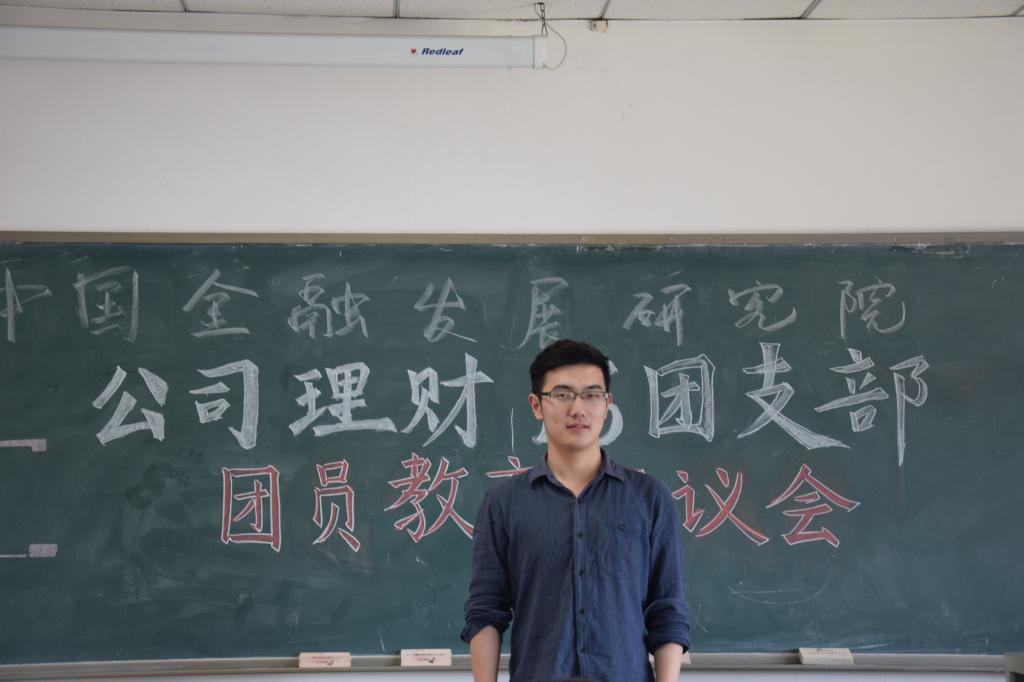 Redleaf
中国金融发展研究院
公司理财 团支部
团员教 议会